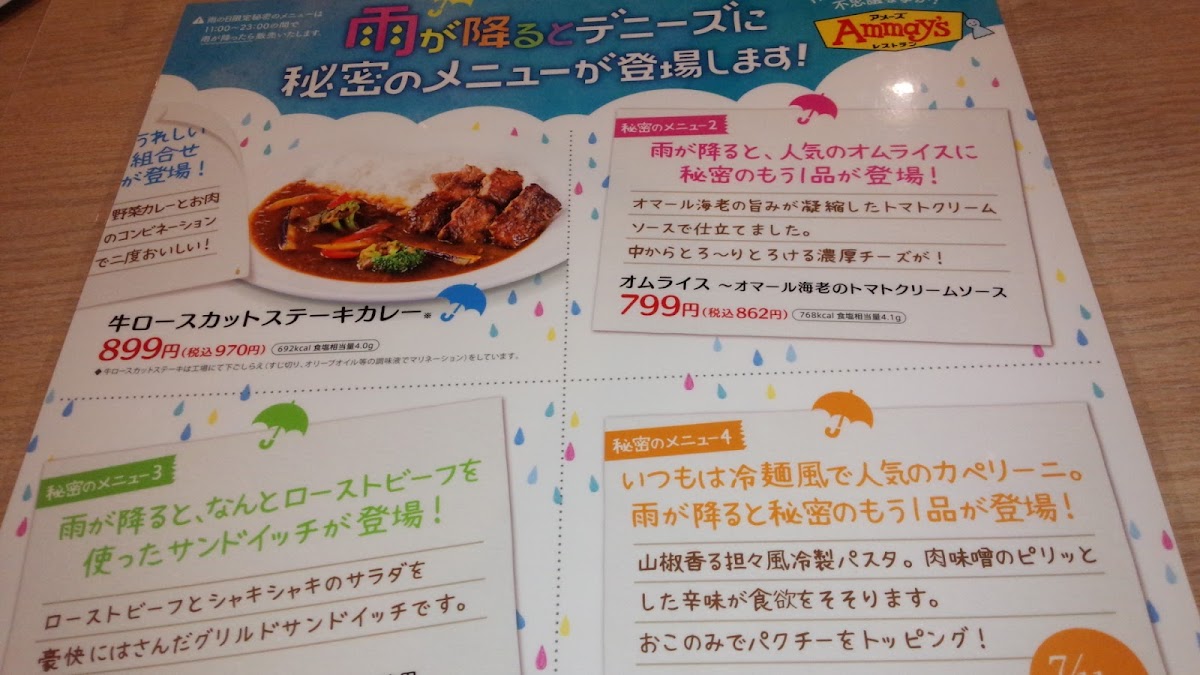 雨の日限定秘密のメニューは
11:00~23:00の間で
雨が降ったら販売いたします。
雨が降るとデニーズに
秘密のメニューが登場します!
アメーズ
Ammay's
レストラン
うれしい
組合せ
が登場!
野菜カレーとお肉
のコンビネーション
で二度おいしい!
牛ロースカットステーキカレー※
899円(税込970円) 692kcal 食塩相当量4.0g
◆牛ロースカットステーキは工場にて下ごしらえ(すじ切り、オリーブオイル等の調味液でマリネーション)をしています。
秘密のメニュー2
雨が降ると、人気のオムライスに
秘密のもう1品が登場!
オマール海老の旨みが凝縮したトマトクリーム
ソースで仕立てました。
中からとろ~りとろける濃厚チーズが!
オムライス ~オマール海老のトマトクリームソース
799円(税込862円) 768kcal 食塩相当量4.1g
秘密のメニュー3
雨が降ると、なんとローストビーフを
使ったサンドイッチが登場!
ローストビーフとシャキシャキのサラダを
豪快にはさんだグリルドサンドイッチです。
秘密のメニュー4
いつもは冷麺風で人気のカペリーニ。
雨が降ると秘密のもう1品が登場!
山椒香る担々風冷製パスタ。肉味噌のピリッと
した辛味が食欲をそそります。
おこのみでパクチーをトッピング!